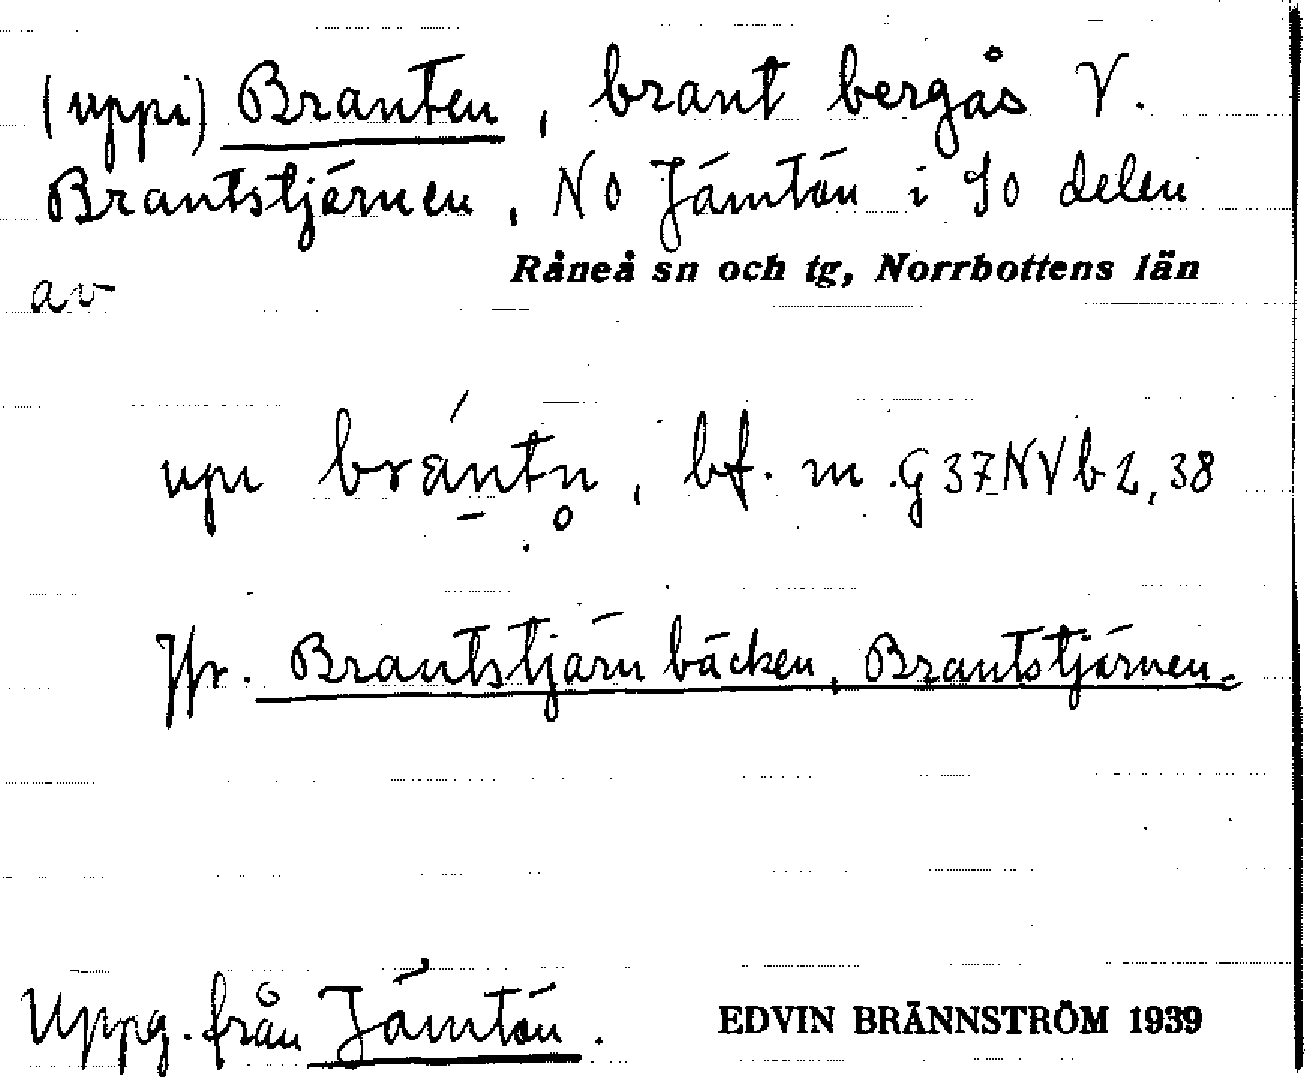 (uppi) Branten, brant bergås V.
Brantstjärnen, NO Jämtön i SO delen
av Råneå sn och tg, Norrbottens län
upi brántn̥, bf. m. G37NVb2,38
Jfr. Brantstjärnbäcken, Brantstjärnen.
Uppg. från Jämtön. EDVIN BRÄNNSTRÖM 1939